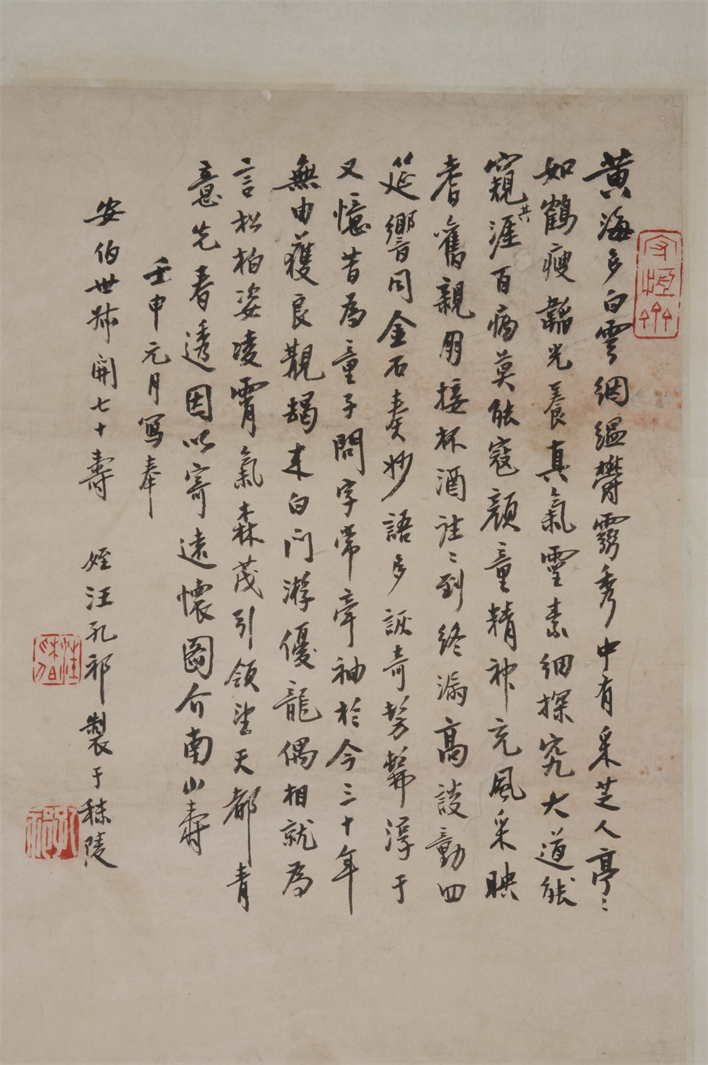 黄海多白雲絪縕鬱秀中有采芝人亭〻
如鶴瘦韜光養真氣靈素細探究大道能
窺其涯百病莫能寇顏童精神充風采映
耆舊親朋接杯酒往〻到終漏高談動四
筵響同金石奏妙語多詼奇髣髴淳于
又憶昔為童子問字常牽袖於今三十年
無由獲良覯朅来白门游優龍偶相就為
言松柏姿凌霄氣森茂引領望天都青
意先春透因以寄遠懷圖介南山壽
壬申元月寫奉
安伯世叔開七十壽 姪汪孔祁製于秣陵